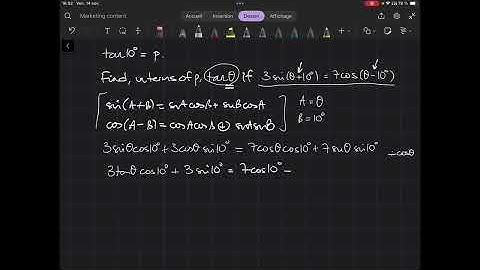 16:52 Ven. 14 nov.
78 %
Marketing content
Accueil Insertion Dessin Affichage
tan10° = p.
Find, in terms of p, tanθ if 3sin(θ+10°) = 7cos(θ-10°)
sin(A+B) = sinAcosB + sinBcosA
A = θ
cos(A-B) = cosAcosB ⊕ sinAsinB
B = 10°
3sinθcos10° + 3cosθsin10° = 7cosθcos10° + 7sinθsin10°
÷cosθ
3tanθcos10° + 3sin10° = 7cos10° -